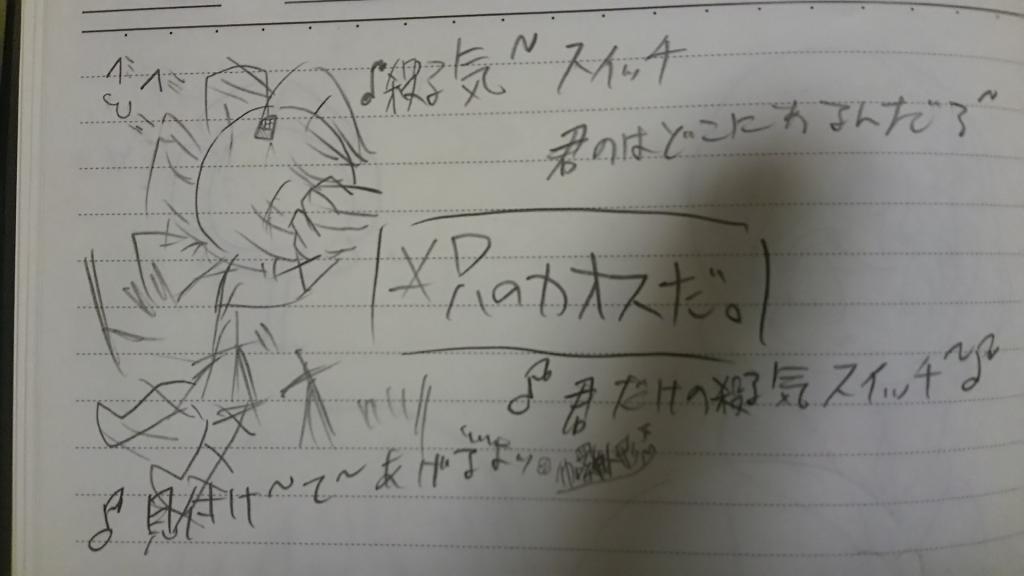 ♪殺る気〜スイッチ
君のはどこにあるんだろ〜
のカオスだ。
♪君だけの殺る気スイッチ〜♪
♪見付け〜て〜あげるよ